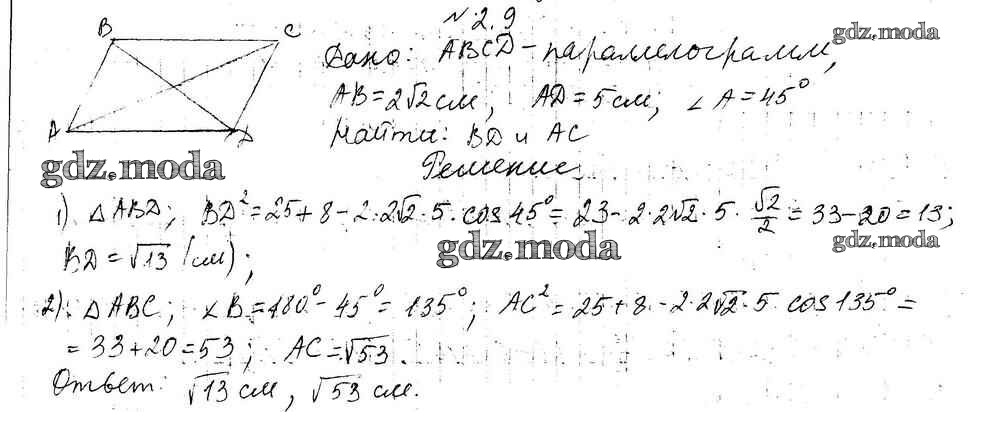 № 2.9
gdz.moda
B C
Дано: ABCD - параллелограмм,
AB = 2√2 см, AD = 5 см; ∠A = 45°
A D
Найти: BD и AC
gdz.moda
Решение
1) △ABD; BD² = 25 + 8 - 2·2√2·5·cos 45° = 23 - 2·2√2·5·√2/2 = 33 - 20 = 13;
gdz.moda gdz.moda
BD = √13 (см);
2). △ABC; ∠B = 180° - 45° = 135°; AC² = 25 + 8 - 2·2√2·5 cos 135° =
= 33 + 20 = 53; AC = √53.
Ответ: √13 см, √53 см.